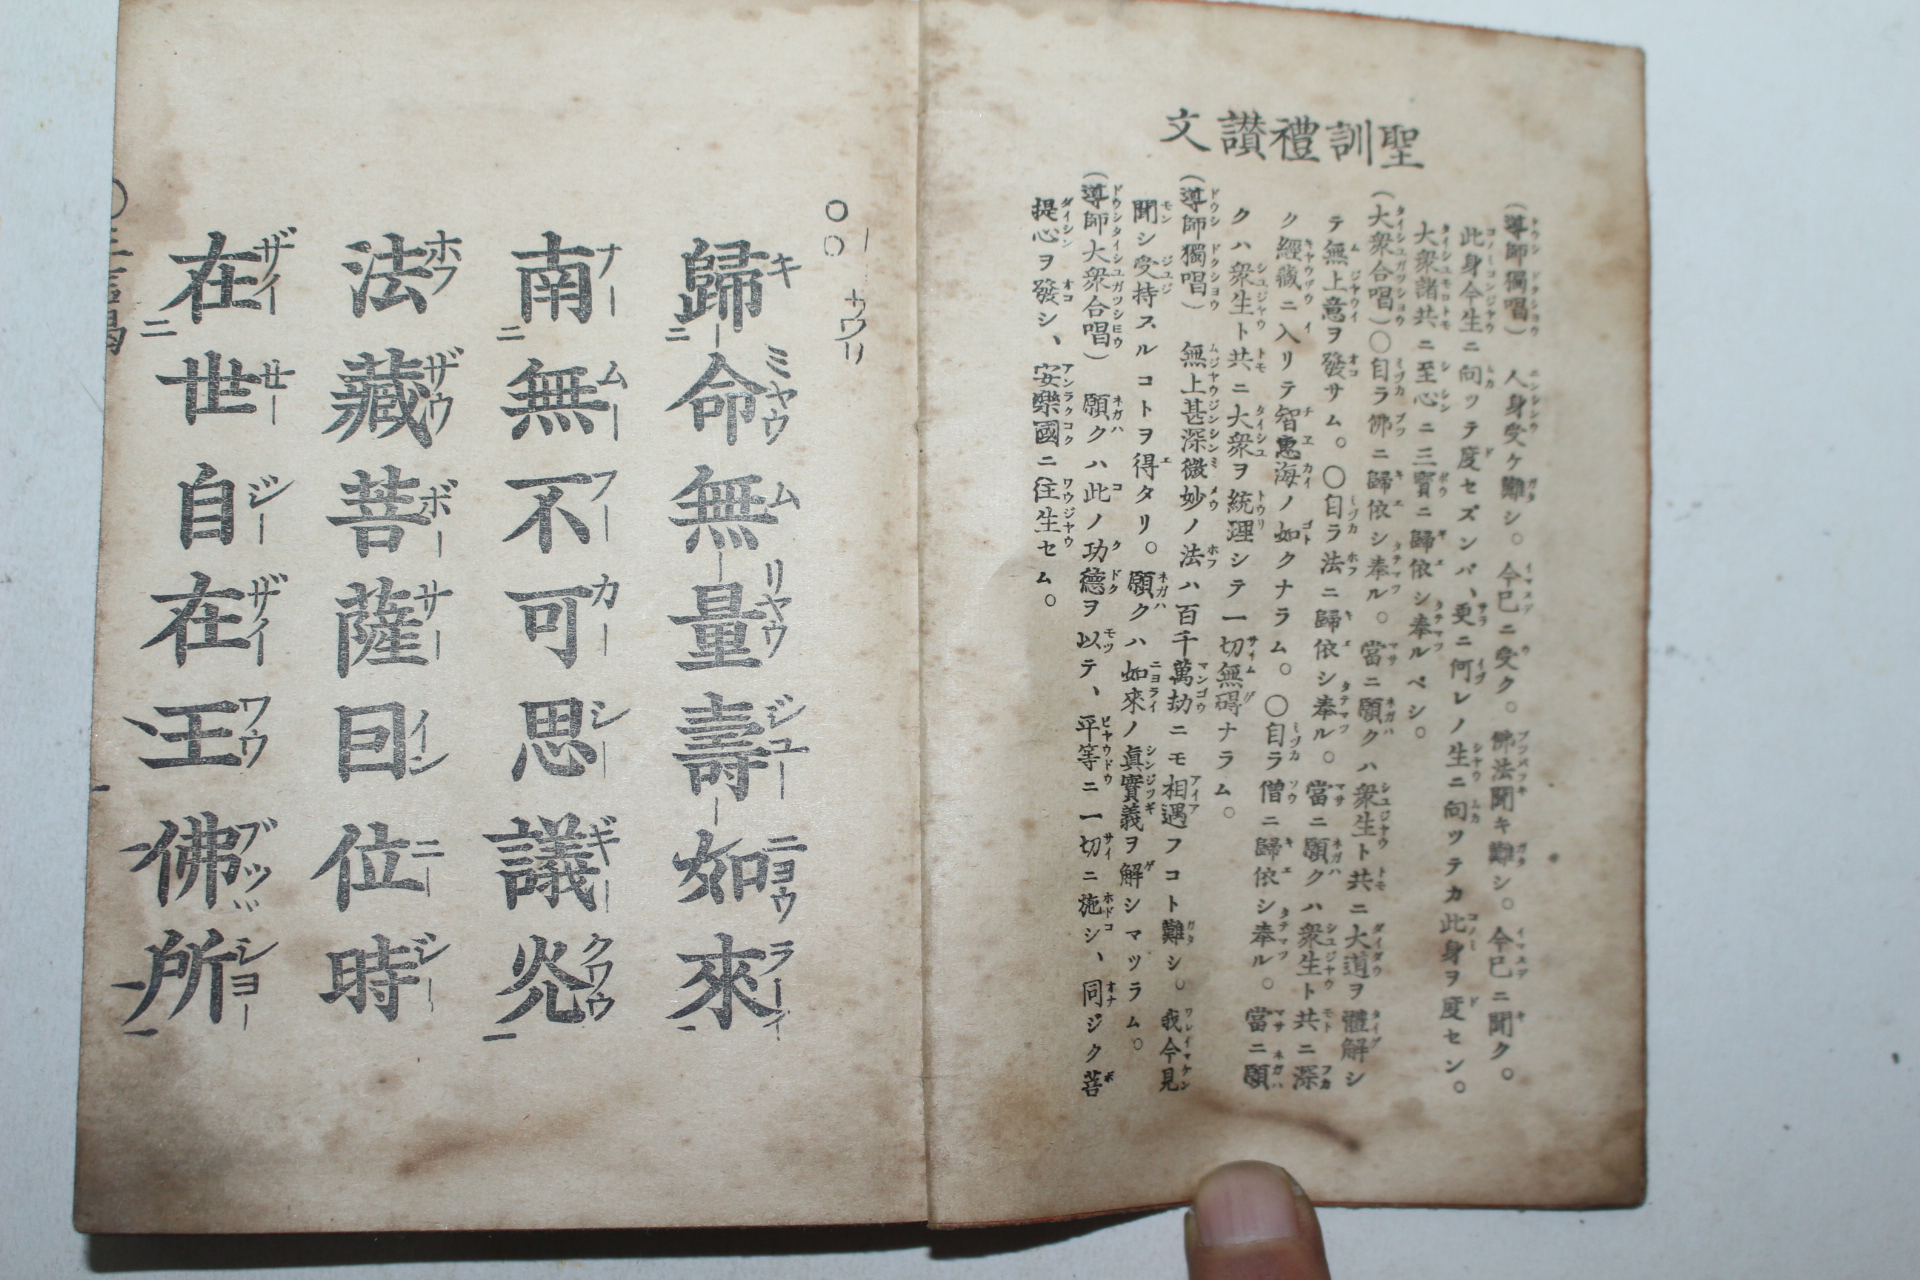 聖訓禮讃文
（導師獨唱）　人身受ケ難シ。今已ニ受ク。佛法聞キ難シ。今已ニ聞ク。
此身今生ニ向ツテ度セズンバ、更ニ何レノ生ニ向ツテカ此身ヲ度セン。
大衆諸共ニ至心ニ三寳ニ歸依シ奉ルベシ。
（大衆合唱）○自ラ佛ニ歸依シ奉ル。當ニ願クハ衆生ト共ニ大道ヲ體解シ
テ無上意ヲ發サム。○自ラ法ニ歸依シ奉ル。當ニ願クハ衆生ト共ニ深
ク經藏ニ入リテ智惠海ノ如クナラム。○自ラ僧ニ歸依シ奉ル。當ニ願
クハ衆生ト共ニ大衆ヲ統理シテ一切無碍ナラム。
（導師獨唱）　無上甚深微妙ノ法ハ百千萬劫ニモ相遇フコト難シ。我今見
聞シ受持スルコトヲ得タリ。願クハ如來ノ眞實義ヲ解シマツラム。
（導師大衆合唱）　願クハ此ノ功德ヲ以テ、平等ニ一切ニ施シ、同ジク菩
提心ヲ發シ、安樂國ニ往生セム。
歸命無量壽如來
南無不可思議光
法藏菩薩因位時
在世自在王佛所